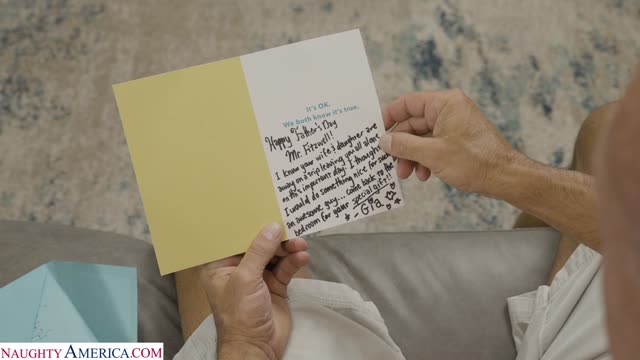 It's OK.
We both know it's true.
Happy Father's Day
Mr. Fitzwell!
I know your wife & daughter are
away on a trip leaving you all alone
on this important day. I thought
I would do something nice for such
an awesome guy... come back to the
bedroom for your special gift!!
- Gia
NAUGHTYAMERICA.COM